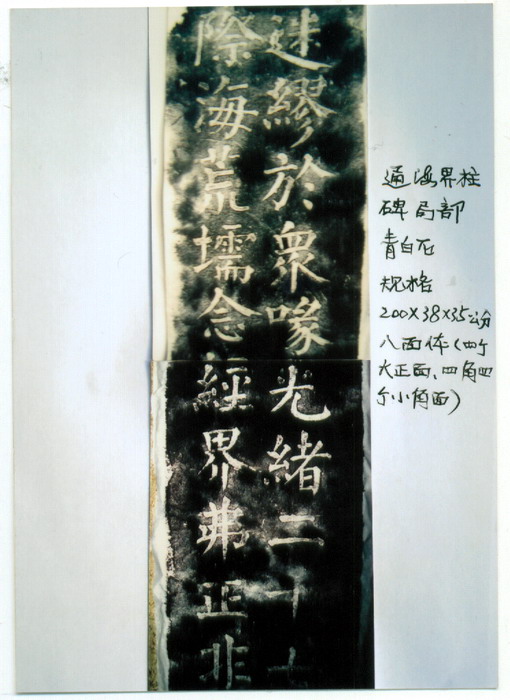 迷繆於衆喙光緒二十七
際海荒壖念經界弗正非
通海界柱
碑局部
青白石
规格
200X38X35公分
八面体(四个
大正面、四角四
个小角面)